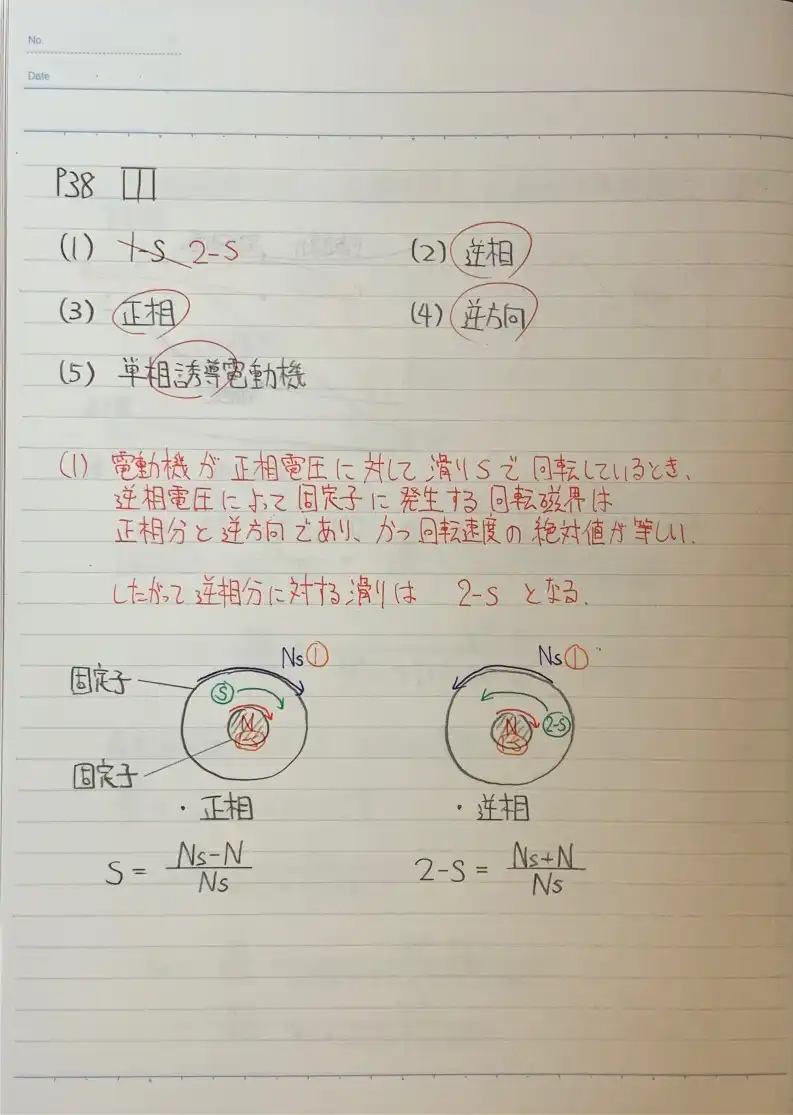 No.
Date
P38 Ⅲ
(1) 1-S 2-S (2) 逆相
(3) 正相 (4) 逆方向
(5) 単相誘導電動機
(1) 電動機が正相電圧に対して滑りSで回転しているとき、
逆相電圧によって固定子に発生する回転磁界は
正相分と逆方向であり、かつ回転速度の絶対値が等しい.
したがって逆相分に対する滑りは 2-S となる.
Ns① Ns①
固定子
S
N N 2-S
1-S 1-S
固定子
・正相 ・逆相
S = (Ns-N)/Ns 2-S = (Ns+N)/Ns